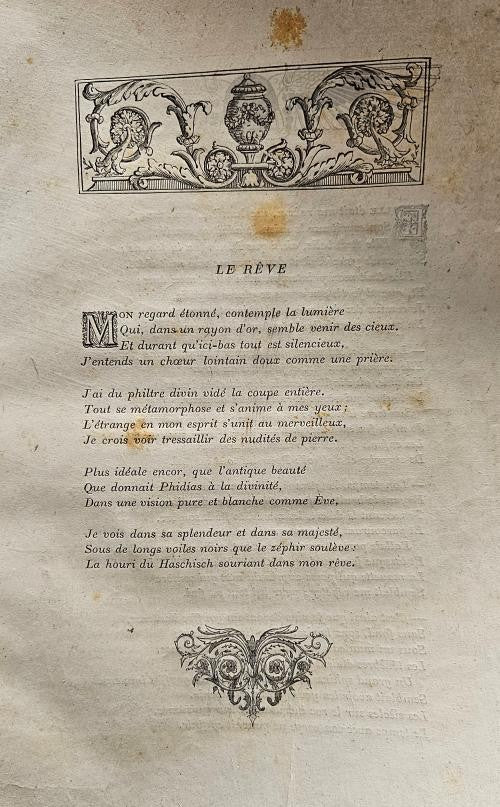 LE RÊVE
MON regard étonné, contemple la lumière
Qui, dans un rayon d'or, semble venir des cieux.
Et durant qu'ici-bas tout est silencieux,
J'entends un chœur lointain doux comme une prière.
J'ai du philtre divin vidé la coupe entière.
Tout se métamorphose et s'anime à mes yeux;
L'étrange en mon esprit s'unit au merveilleux,
Je crois voir tressaillir des nudités de pierre.
Plus idéale encor, que l'antique beauté
Que donnait Phidias à la divinité,
Dans une vision pure et blanche comme Ève,
Je vois dans sa splendeur et dans sa majesté,
Sous de longs voiles noirs que le zéphir soulève:
La houri du Haschisch souriant dans mon rêve.